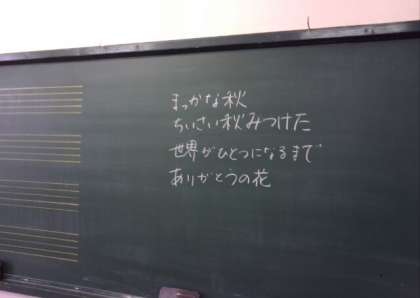 まっかな秋
ちいさい秋みつけた
世界がひとつになるまで
ありがとうの花